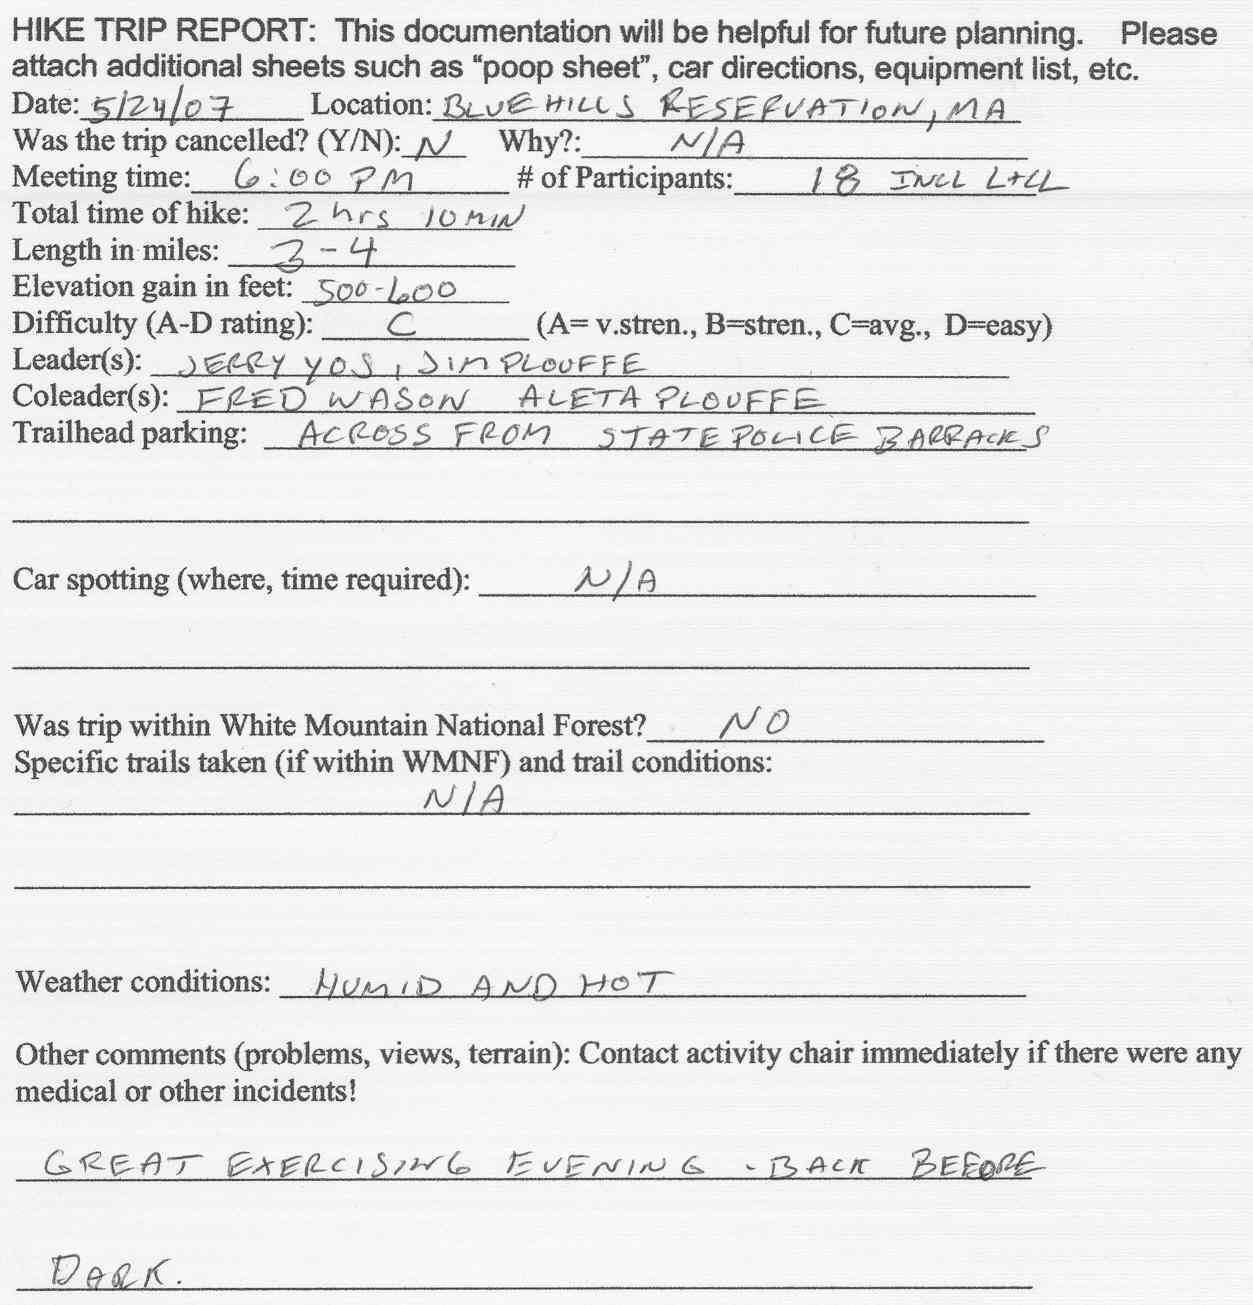 HIKE TRIP REPORT: This documentation will be helpful for future planning. Please
attach additional sheets such as “poop sheet”, car directions, equipment list, etc.
Date: 5/24/07 Location: BLUE HILLS RESERVATION, MA
Was the trip cancelled? (Y/N): N Why?: N/A
Meeting time: 6:00 PM # of Participants: 18 INCL L+CL
Total time of hike: 2 hrs 10 MIN
Length in miles: 3-4
Elevation gain in feet: 500-600
Difficulty (A-D rating): C (A= v.stren., B=stren., C=avg., D=easy)
Leader(s): JERRY YOS, JIM PLOUFFE
Coleader(s): FRED WASON ALETA PLOUFFE
Trailhead parking: ACROSS FROM STATE POLICE BARRACKS
Car spotting (where, time required): N/A
Was trip within White Mountain National Forest? NO
Specific trails taken (if within WMNF) and trail conditions:
N/A
Weather conditions: HUMID AND HOT
Other comments (problems, views, terrain): Contact activity chair immediately if there were any
medical or other incidents!
GREAT EXERCISING EVENING - BACK BEFORE
DARK.